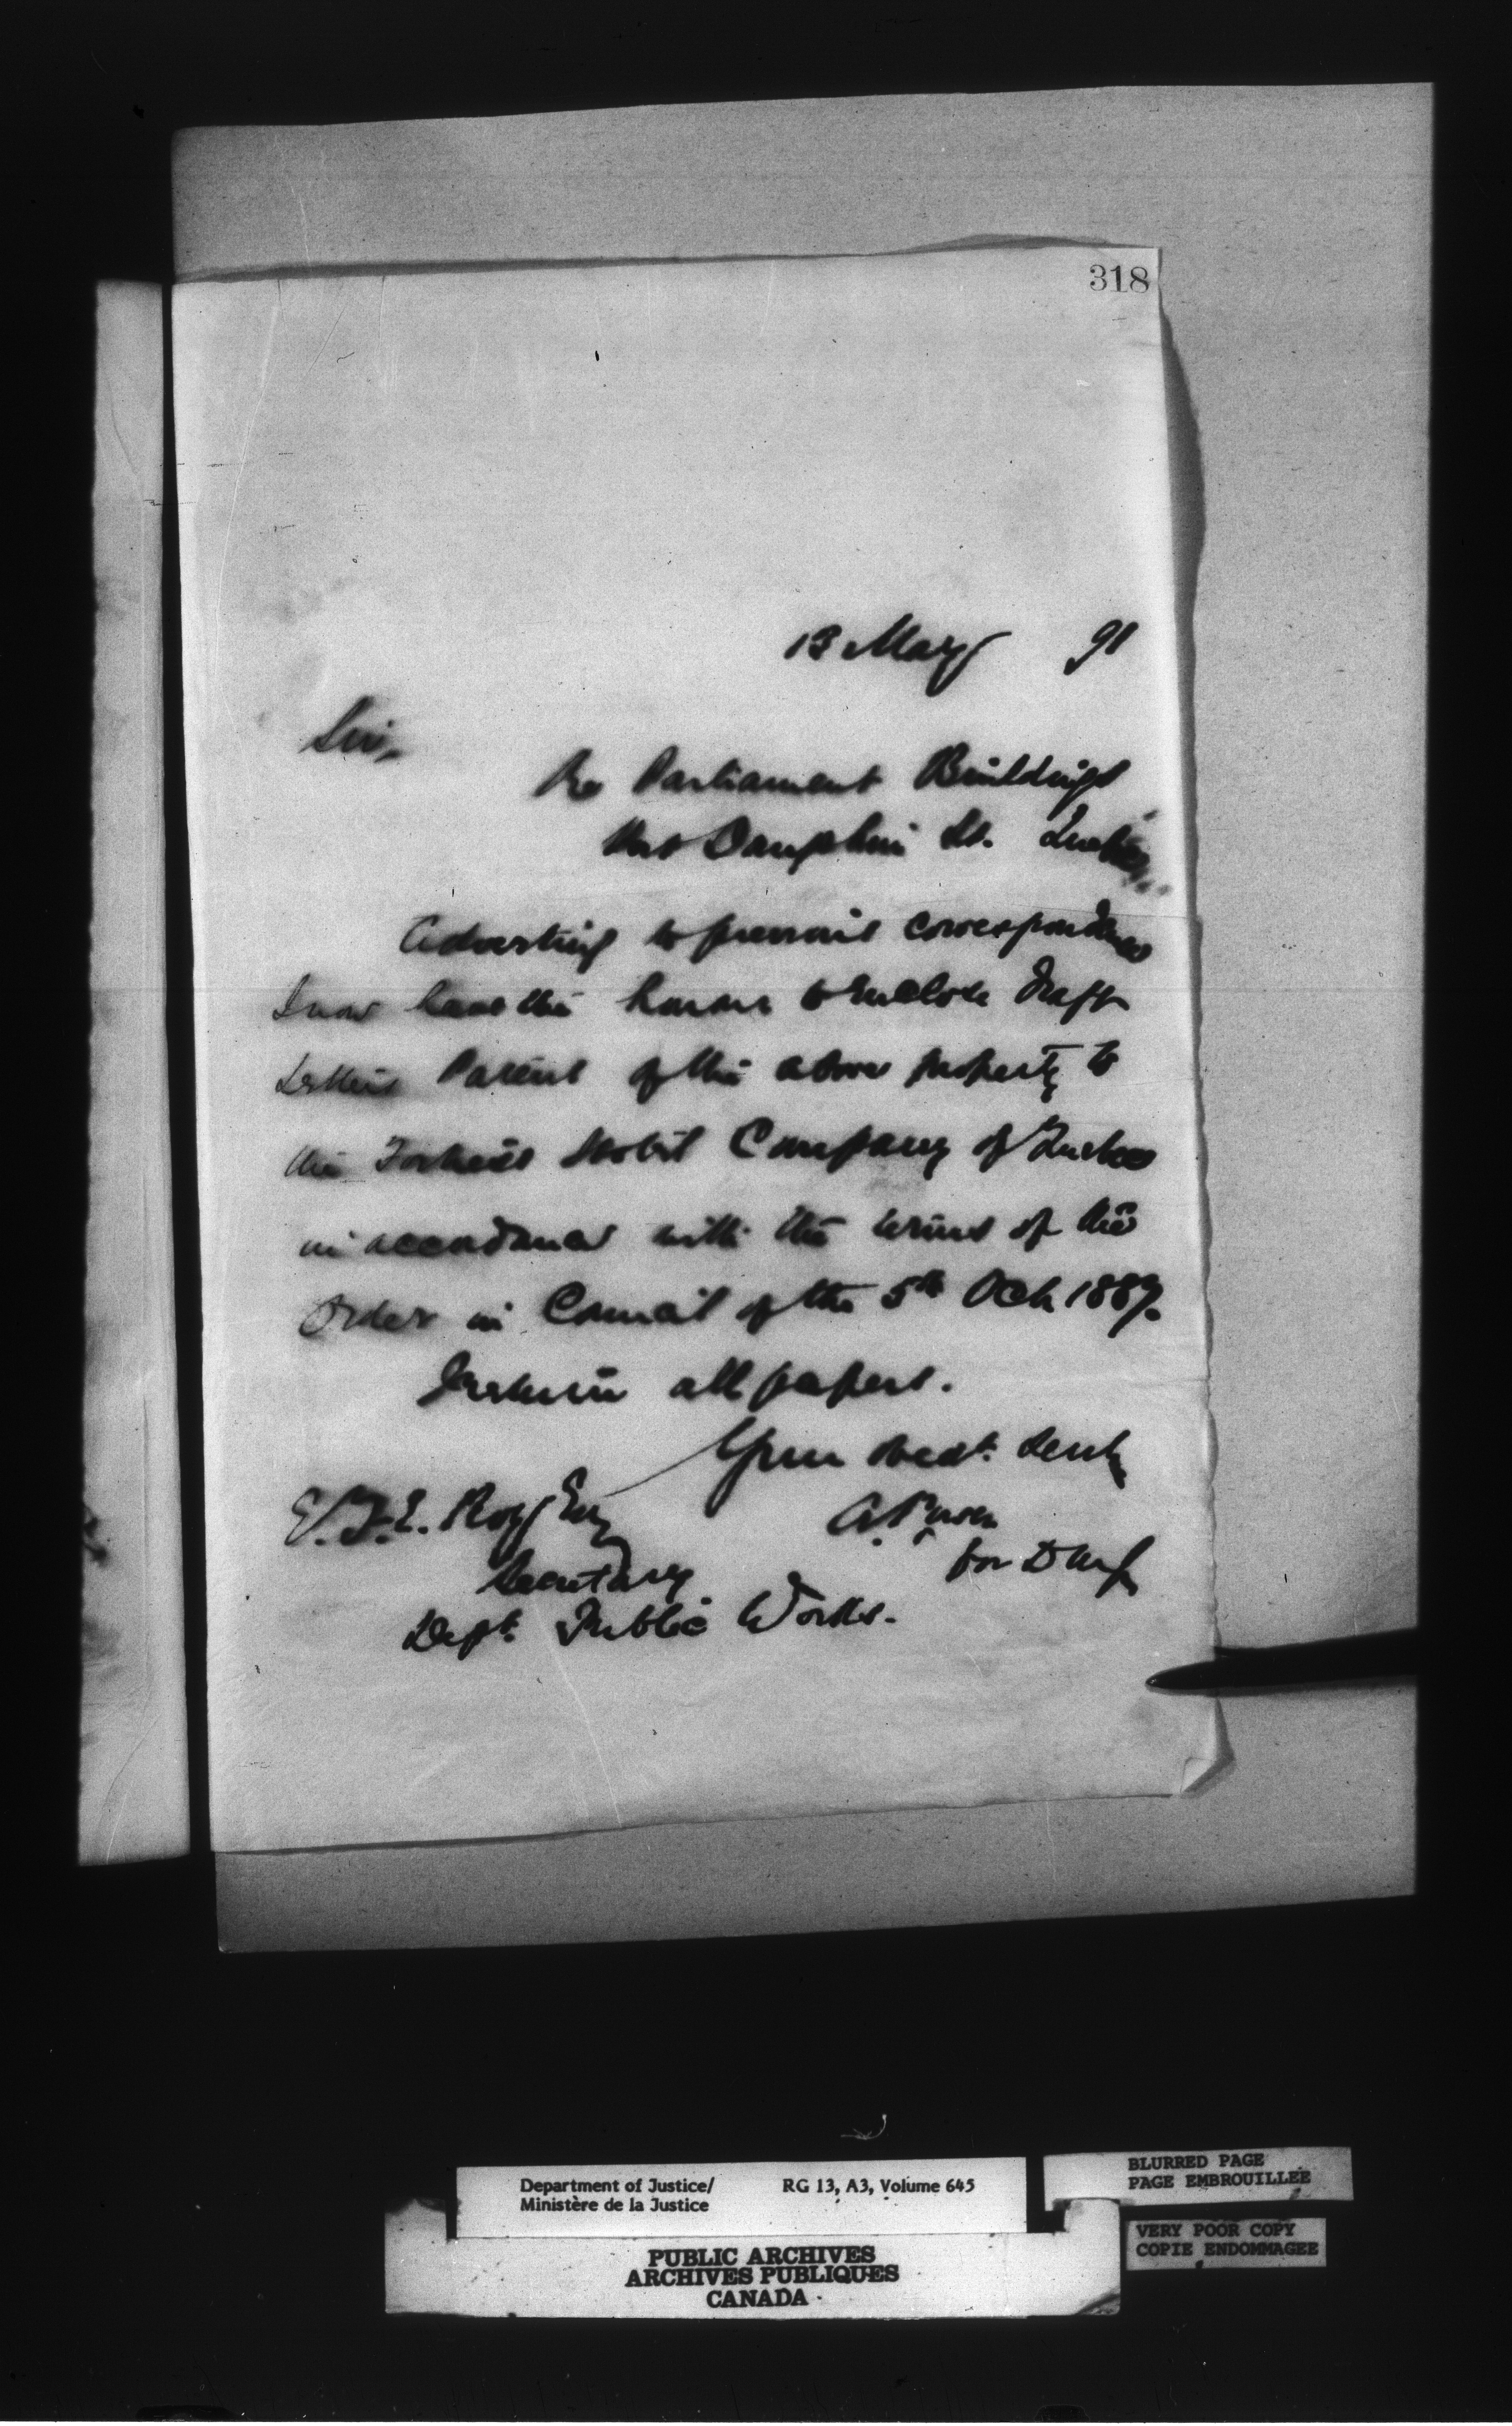 318
13 May 91
Sir,
Re Parliament Buildings
Dauphin St. Quebec
Adverting to previous correspondence
I now have the honour to enclose draft
Letters Patent of the above property to
the Company of Quebec
in accordance with the terms of the
Order in Council of the 5th Oct 1889.
I return all papers.
Your obedt. Servt
A. Power
for D M J
E.F.E. Roy Esq
Secretary
Dept. Public Works.
Department of Justice/ RG 13, A3, Volume 645
Ministère de la Justice
BLURRED PAGE
PAGE EMBROUILLEE
VERY POOR COPY
COPIE ENDOMMAGEE
PUBLIC ARCHIVES
ARCHIVES PUBLIQUES
CANADA